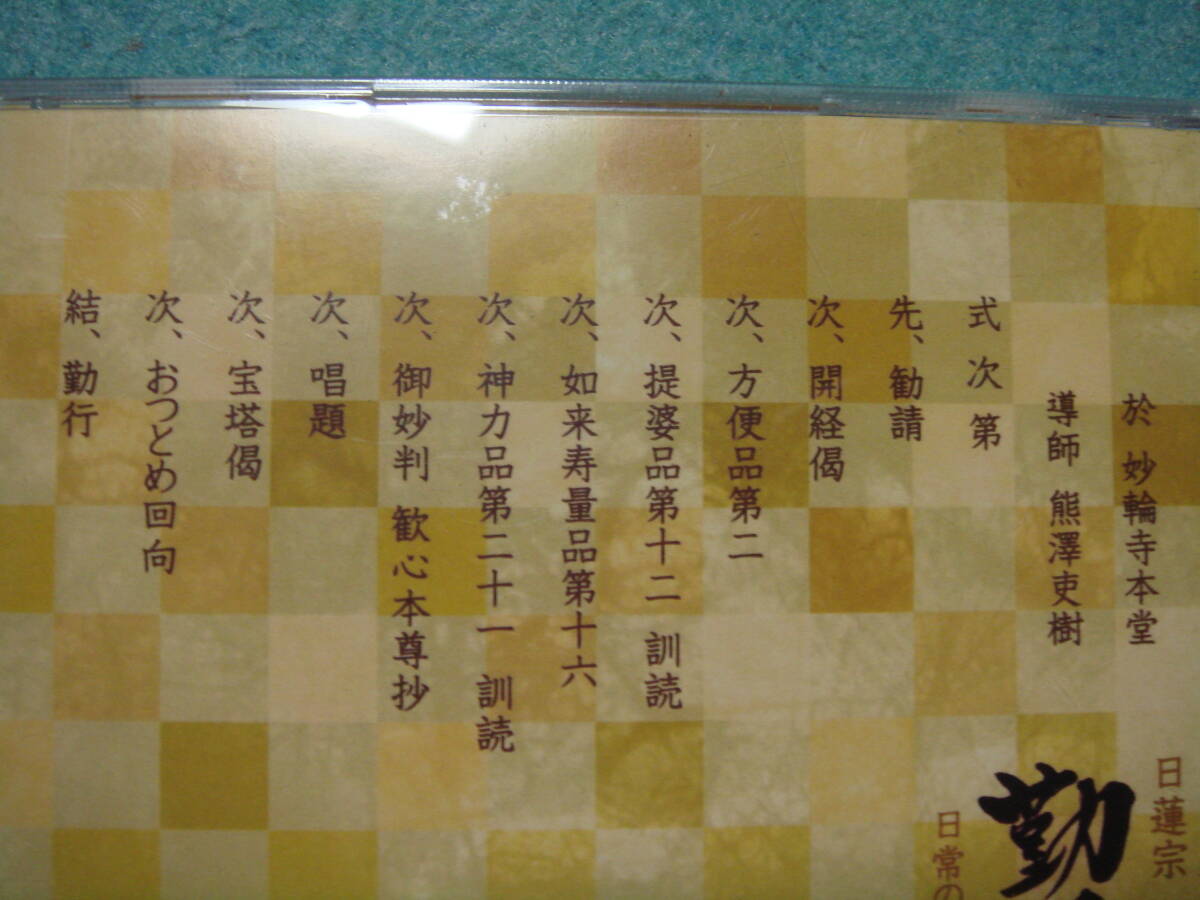 於 妙輪寺本堂
導師 熊澤吏樹
式次第
先、勧請
次、開経偈
次、方便品第二
次、提婆品第十二 訓読
次、如来寿量品第十六
次、神力品第二十一 訓読
次、御妙判 歓心本尊抄
次、唱題
次、宝塔偈
次、おつとめ回向
結、勤行
日蓮宗
勤
日常の